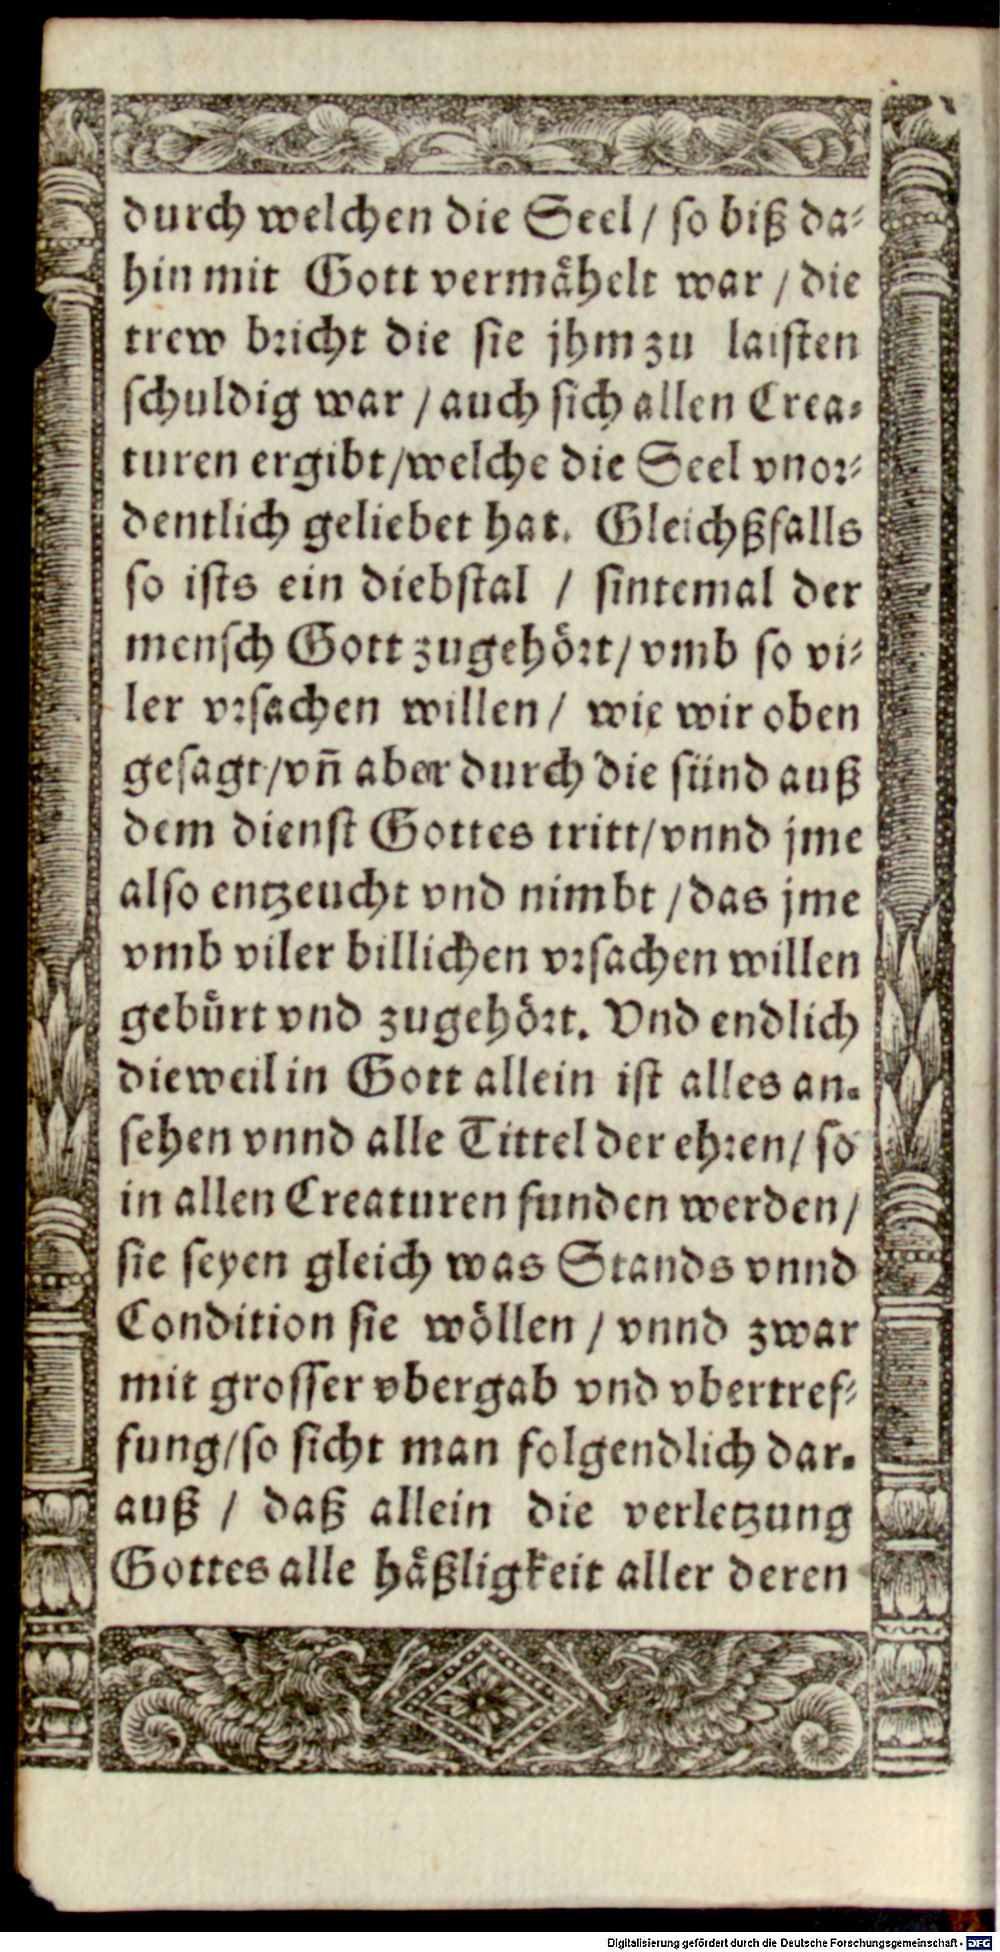 durch welchen die Seel / so biß da⸗
hin mit Gott vermaͤhelt war / die
trew bricht die sie jhm zu laisten
schuldig war / auch sich allen Crea⸗
turen ergibt / welche die Seel vnor⸗
dentlich geliebet hat. Gleichßfalls
so ists ein diebstal / sintemal der
mensch Gott zugehoͤrt / vmb so vi⸗
ler vrsachen willen / wie wir oben
gesagt / vn̄ aber durch die sünd auß
dem dienst Gottes tritt / vnnd jme
also entzeucht vnd nimbt / das jme
vmb viler billichen vrsachen willen
gebuͤrt vnd zugehoͤrt. Vnd endlich
dieweil in Gott allein ist alles an⸗
sehen vnnd alle Tittel der ehren / so
in allen Creaturen funden werden /
sie seyen gleich was Stands vnnd
Condition sie woͤllen / vnnd zwar
mit grosser vbergab vnd vbertref⸗
fung / so sicht man folgendlich dar⸗
auß / daß allein die verletzung
Gottes alle haͤßligkeit aller deren
Digitalisierung gefördert durch die Deutsche Forschungsgemeinschaft - DFG